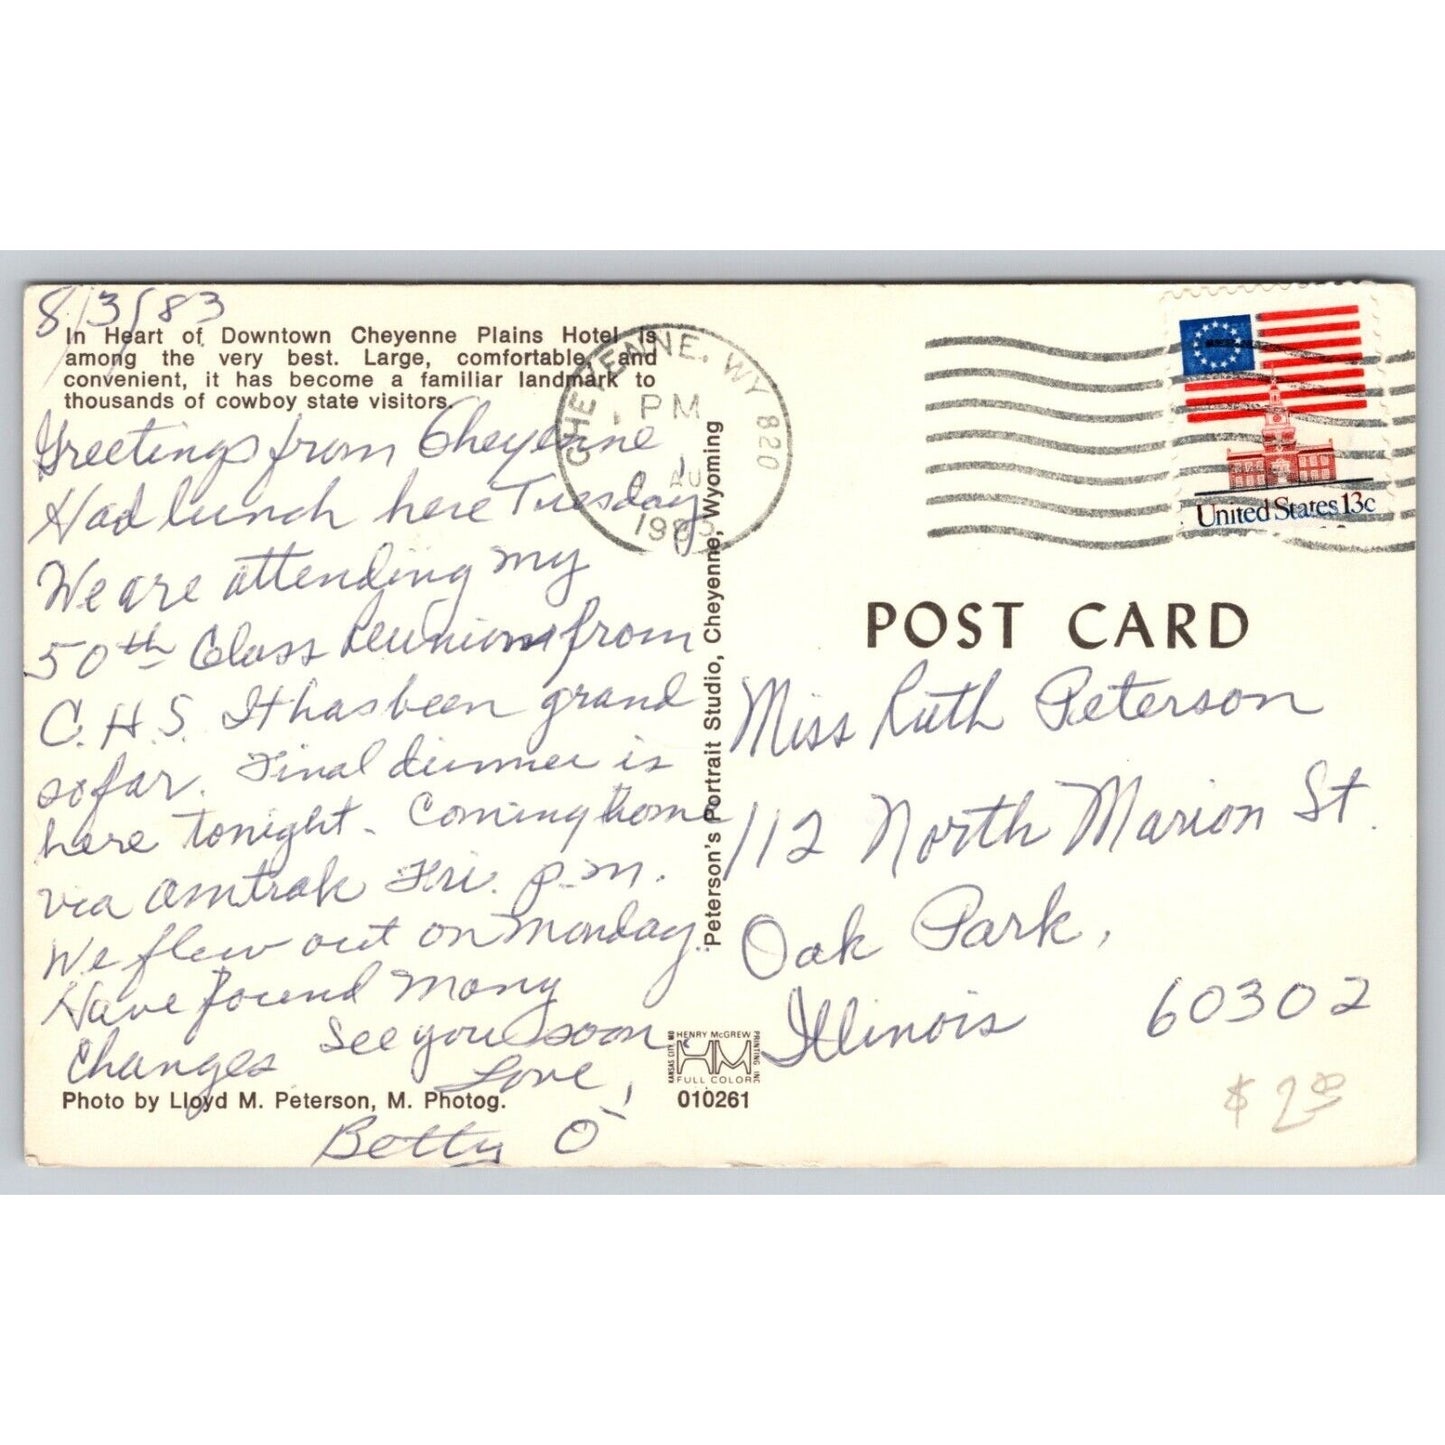 8/3/83
In Heart of Downtown Cheyenne Plains Hotel is
among the very best. Large, comfortable, and
convenient, it has become a familiar landmark to
thousands of cowboy state visitors.
Greetings from Cheyenne
Had lunch here Tuesday
We are attending my
50th Class Reunion from
C.H.S. It has been grand
so far. Final dinner is
here tonight. Coming home
via Amtrak Fri. p.m.
We flew out on Monday.
Have found many
changes See you soon.
Love,
Betty O
Photo by Lloyd M. Peterson, M. Photog.
CHEYENNE, WY 820
PM
AU
Peterson's Portrait Studio, Cheyenne, Wyoming
HENRY McGREW
PRINTING INC
KANSAS CITY, MO
HM
FULL COLOR
010261
United States 13c
POST CARD
Miss Ruth Peterson
112 North Marion St.
Oak Park,
Illinois 60302
$2.00